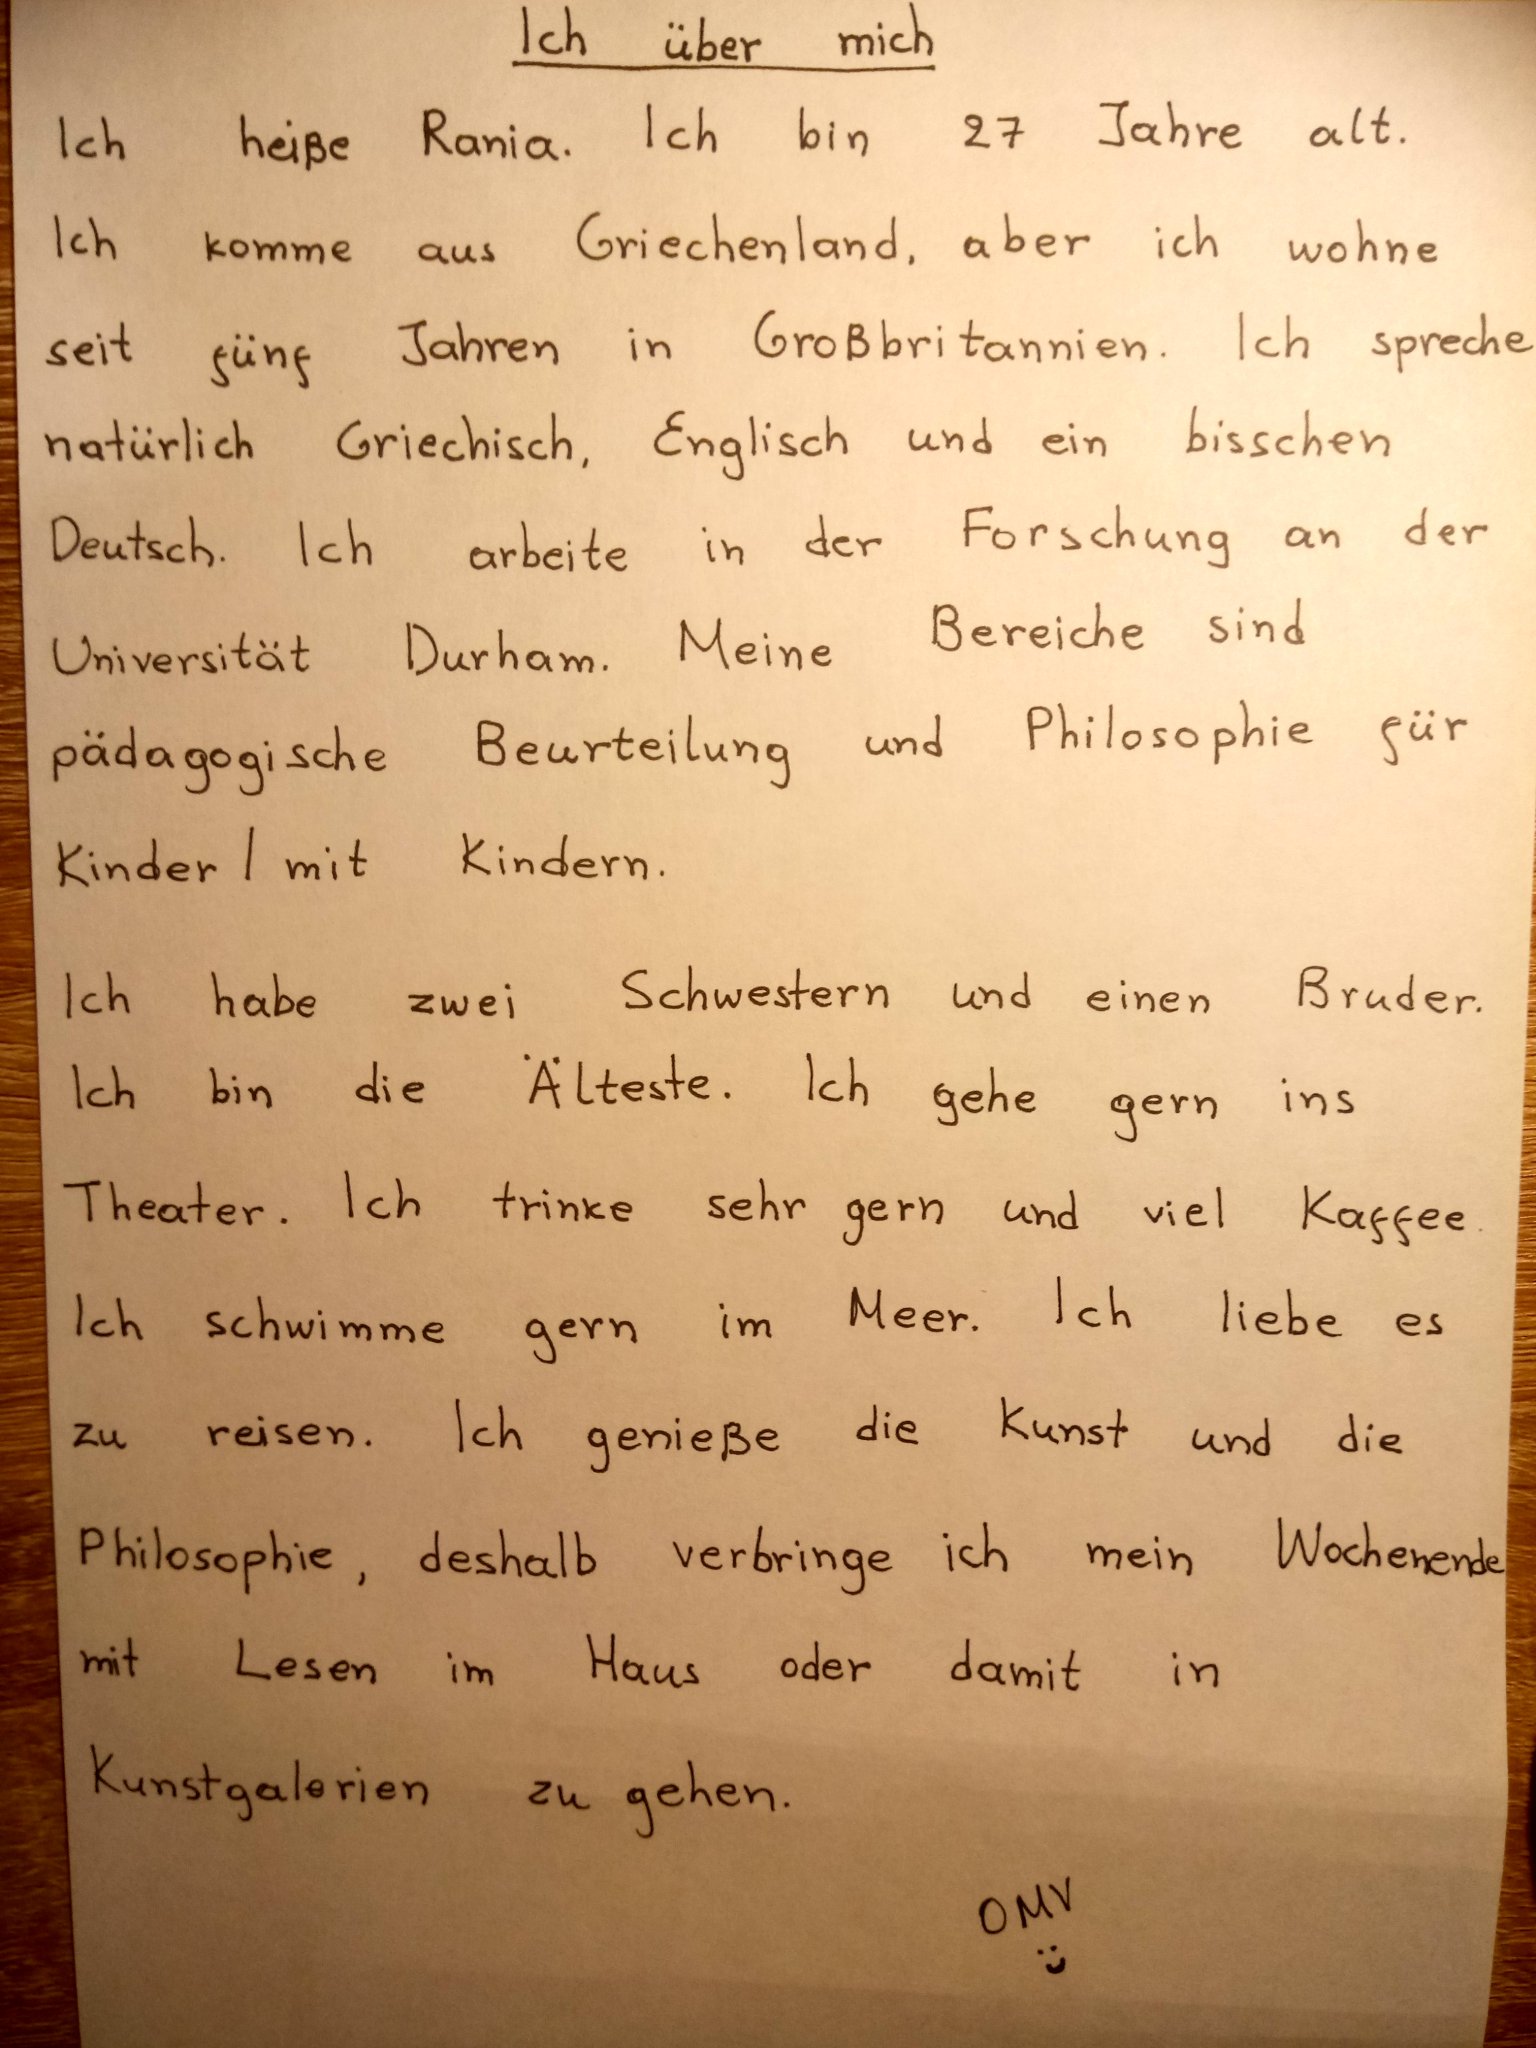 Ich über mich
Ich heiße Rania. Ich bin 27 Jahre alt.
Ich komme aus Griechenland, aber ich wohne
seit fünf Jahren in Großbritannien. Ich spreche
natürlich Griechisch, Englisch und ein bisschen
Deutsch. Ich arbeite in der Forschung an der
Universität Durham. Meine Bereiche sind
pädagogische Beurteilung und Philosophie für
Kinder / mit Kindern.
Ich habe zwei Schwestern und einen Bruder.
Ich bin die Älteste. Ich gehe gern ins
Theater. Ich trinke sehr gern und viel Kaffee.
Ich schwimme gern im Meer. Ich liebe es
zu reisen. Ich genieße die Kunst und die
Philosophie, deshalb verbringe ich mein Wochenende
mit Lesen im Haus oder damit in
Kunstgalerien zu gehen.
OMV